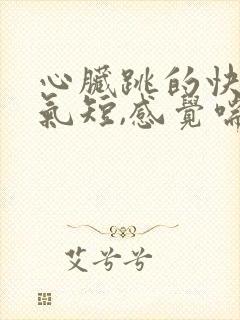 心臟跳的快
氣短,感覺喘
艾兮兮